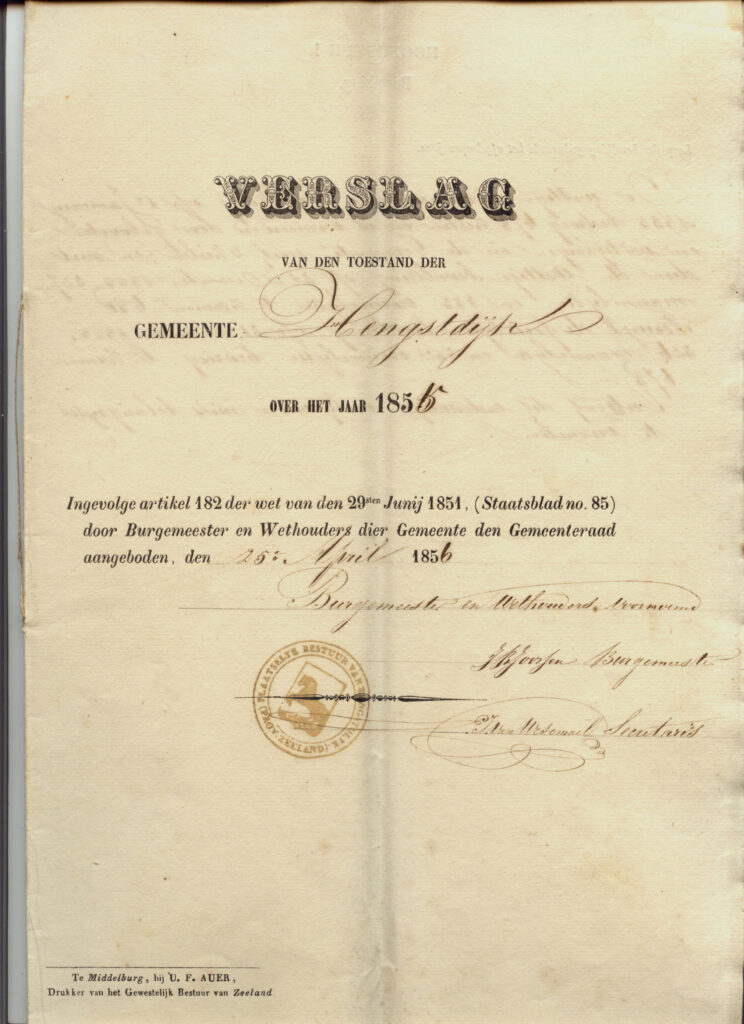 VERSLAG
VAN DEN TOESTAND DER
GEMEENTE Hengstdijk
OVER HET JAAR 1855
Ingevolge artikel 182 der wet van den 29sten Junij 1851, (Staatsblad no. 85)
door Burgemeester en Wethouders dier Gemeente den Gemeenteraad
aangeboden, den 25e April 1856
Burgemeester en Wethouders voornoemd
Burgemeester
PLAATSELYK BESTUUR VAN (ZEELAND)
Secretaris
Te Middelburg, bij U. F. AUER,
Drukker van het Gewestelijk Bestuur van Zeeland